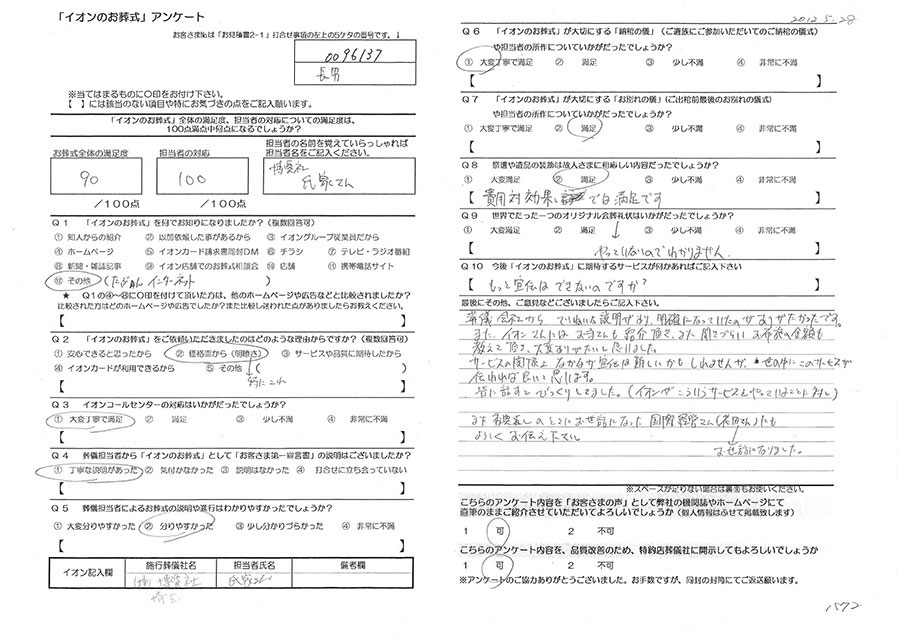 「イオンのお葬式」アンケート
お客さま№は「お見積書2-1」打合せ事項の左上の5ケタの番号です。↓
0096137
長男
※当てはまるものに○印をお付け下さい。
【　】には該当のない項目や特にお気づきの点をご記入願います。
「イオンのお葬式」全体の満足度、担当者の対応についての満足度は、
100点満点中何点になるでしょうか？
担当者の名前を覚えていらっしゃれば
担当者名をご記入ください。
お葬式全体の満足度
担当者の対応
90
100
博愛社
氏家さん
／100点
／100点
Q1　「イオンのお葬式」を何でお知りになりましたか？（複数回答可）
① 知人からの紹介　② 以前依頼した事があるから　③ イオングループ従業員だから
④ ホームページ　⑤ イオンカード請求書同封DM　⑥ チラシ　⑦ テレビ・ラジオ番組
⑧ 新聞・雑誌記事　⑨ イオン店舗でのお葬式相談会　⑩ 店舗　⑪ 携帯電話サイト
⑫ その他　（たぶん インターネット　）
★　Q1の④～⑧に○印を付けて頂いた方は、他のホームページや広告などと比較されましたか？
比較された方はどのホームページや広告でしたか？また比較し迷われた点がありましたらお教えください。
【　】
Q2　「イオンのお葬式」をご依頼いただきましたのはどのような理由からですか？（複数回答可）
① 安心できると思ったから　② 価格面から（明瞭さ）　③ サービスや品質に期待したから
④ イオンカードが利用できるから　⑤ その他（　）
特にこれ
【　】
Q3　イオンコールセンターの対応はいかがだったでしょうか？
① 大変丁寧で満足　② 満足　③ 少し不満　④ 非常に不満
【　】
Q4　葬儀担当者から「イオンのお葬式」として「お客さま第一宣言書」の説明はございましたか？
① 丁寧な説明があった　② 気付かなかった　③ 説明はなかった　④ 打合せに立ち会っていない
【　】
Q5　葬儀担当者によるお葬式の説明や進行はわかりやすかったでしょうか？
① 大変分りやすかった　② 分りやすかった　③ 少し分りづらかった　④ 非常に不満
【　】
イオン記入欄　施行葬儀社名　担当者氏名　備考欄
(株)博愛社　氏家さん
埼玉
2012.5.28
Q6　「イオンのお葬式」が大切にする「納棺の儀」（ご遺族にご参加いただいてのご納棺の儀式）
や担当者の所作についていかがだったでしょうか？
① 大変丁寧で満足　② 満足　③ 少し不満　④ 非常に不満
【　】
Q7　「イオンのお葬式」が大切にする「お別れの儀」（ご出棺前最後のお別れの儀式）
や担当者の所作についていかがだったでしょうか？
① 大変丁寧で満足　② 満足　③ 少し不満　④ 非常に不満
【　】
Q8　祭壇や遺品の装飾は故人さまに相応しい内容だったでしょうか？
① 大変満足　② 満足　③ 少し不満　④ 非常に不満
【 費用対効果では満足です 】
Q9　世界でたった一つのオリジナル会葬礼状はいかがだったでしょうか？
① 大変満足　② 満足　③ 少し不満　④ 非常に不満
【 やっていないのでわかりません。 】
Q10　今後「イオンのお葬式」に期待するサービスが何かあればご記入下さい
【 もっと宣伝はできないのですか？ 】
最後にその他、ご意見などございましたらご記入下さい。
葬儀会社からていねいな説明があり、明確になっていたのがありがたかったです。
また、イオンさんにはお寺さんも紹介頂き、また聞きづらいお布施の金額も
教えて頂き、大変ありがたいと思いました。
サービスの関係上なかなか宣伝は難しいかもしれませんが、世の中にこのサービスが
伝われば良いと思います。
皆に話すとびっくりしてました。（イオンがこういうサービスをやってることに対し）
また
お世話になった
さん
にも
よろしくお伝え下さい
お世話になりました。
※スペースが足りない場合は裏面もお使いください。
こちらのアンケート内容を「お客さまの声」として弊社の機関誌やホームページにて
直筆のままご紹介させていただいてよろしいでしょうか（個人情報はふせて掲載致します）
1　可　2　不可
こちらのアンケート内容を、品質改善のため、特約店葬儀社に開示してもよろしいでしょうか
1　可　2　不可
※アンケートのご協力ありがとうございました。お手数ですが、同封の封筒にてご返送願います。
1572